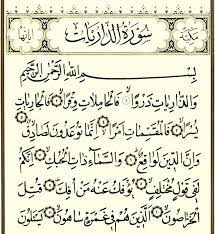 سُورَةُ الذَّارِيَاتِ
بِسْمِ اللَّهِ الرَّحْمَنِ الرَّحِيمِ
وَالذَّارِيَاتِ ذَرْوًا ۝ فَالْحَامِلَاتِ وِقْرًا ۝ فَالْجَارِيَاتِ
يُسْرًا ۝ فَالْمُقَسِّمَاتِ أَمْرًا ۝ إِنَّمَا تُوعَدُونَ لَصَادِقٌ ۝
وَإِنَّ الدِّينَ لَوَاقِعٌ ۝ وَالسَّمَاءِ ذَاتِ الْحُبُكِ ۝ إِنَّكُمْ
لَفِي قَوْلٍ مُخْتَلِفٍ ۝ يُؤْفَكُ عَنْهُ مَنْ أُفِكَ ۝ قُتِلَ
الْخَرَّاصُونَ ۝ الَّذِينَ هُمْ فِي غَمْرَةٍ سَاهُونَ ۝ يَسْئَلُونَ